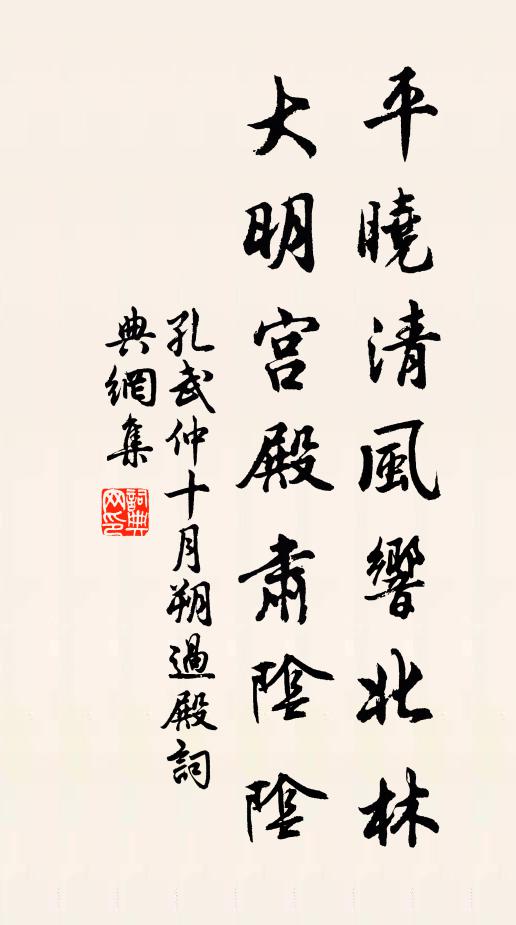 平曉清風響北林
大明宮殿肅陰陰
孔武仲十月朔過殿詞
典網集
詞典網印